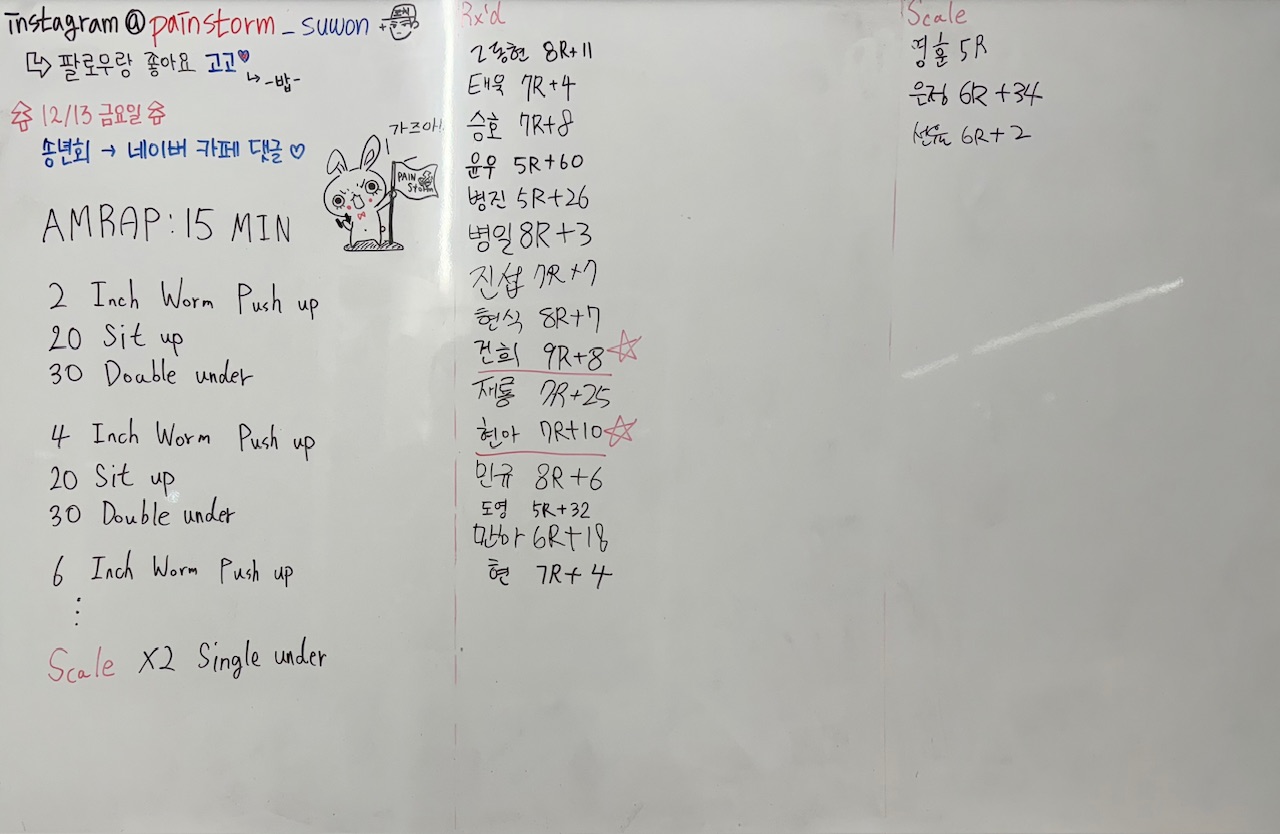 instagram@painstorm_suwon
팔로우랑 좋아요 고고
-밥-
12/13 금요일
송년회 → 네이버 카페 댓글 ♡
가즈아!!
PAIN
Storm
AMRAP: 15 MIN
2 Inch Worm Push up
20 Sit up
30 Doable under
4 Inch Worm Push up
20 Sit up
30 Double under
6 Inch Worm Push up
⋮
Scale X2 Single under
Rx'd
동현 8R+11
태욱 7R+4
승호 7R+8
윤우 5R+60
병진 5R+26
병일 8R+3
진섭 7R+7
현식 8R+7
건희 9R+8 ☆
재룡 7R+25
현아 7R+10 ☆
민규 8R+6
도영 5R+32
6R+18
현 7R+4
Scale
정훈 5R
은정 6R+34
6R+2